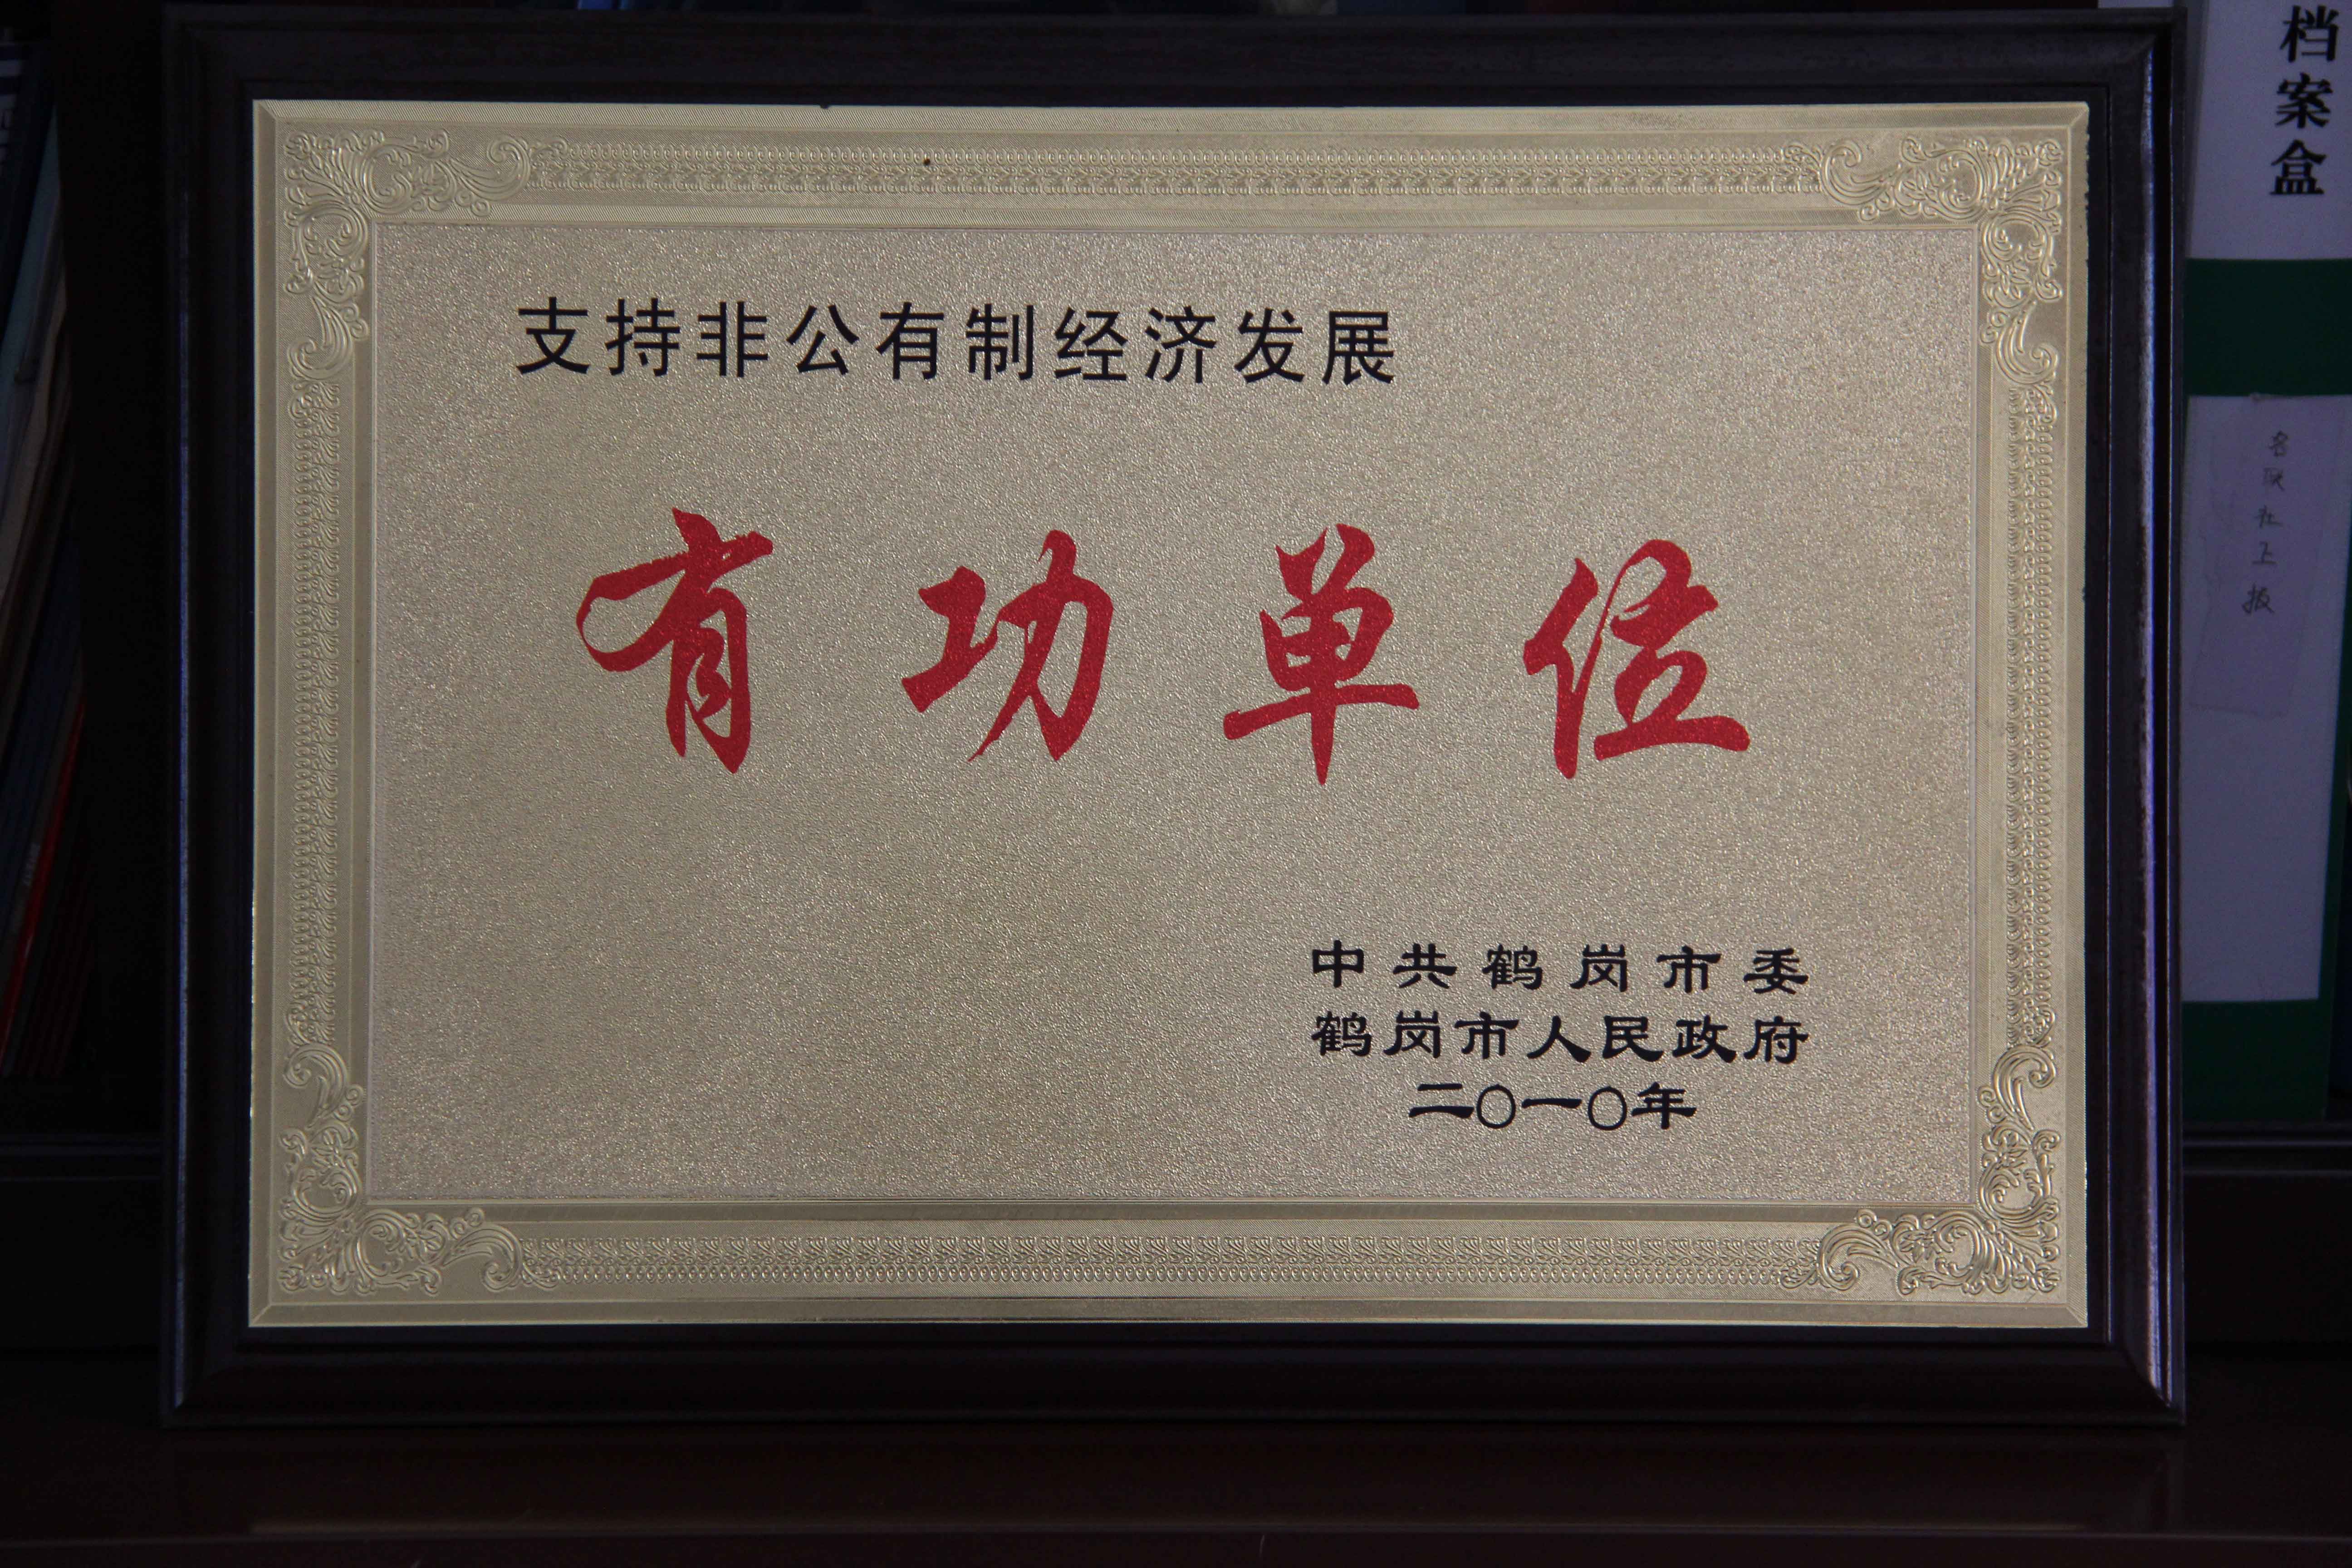 支持非公有制经济发展
有功单位
中共鹤岗市委
鹤岗市人民政府
二〇一〇年
档案盒